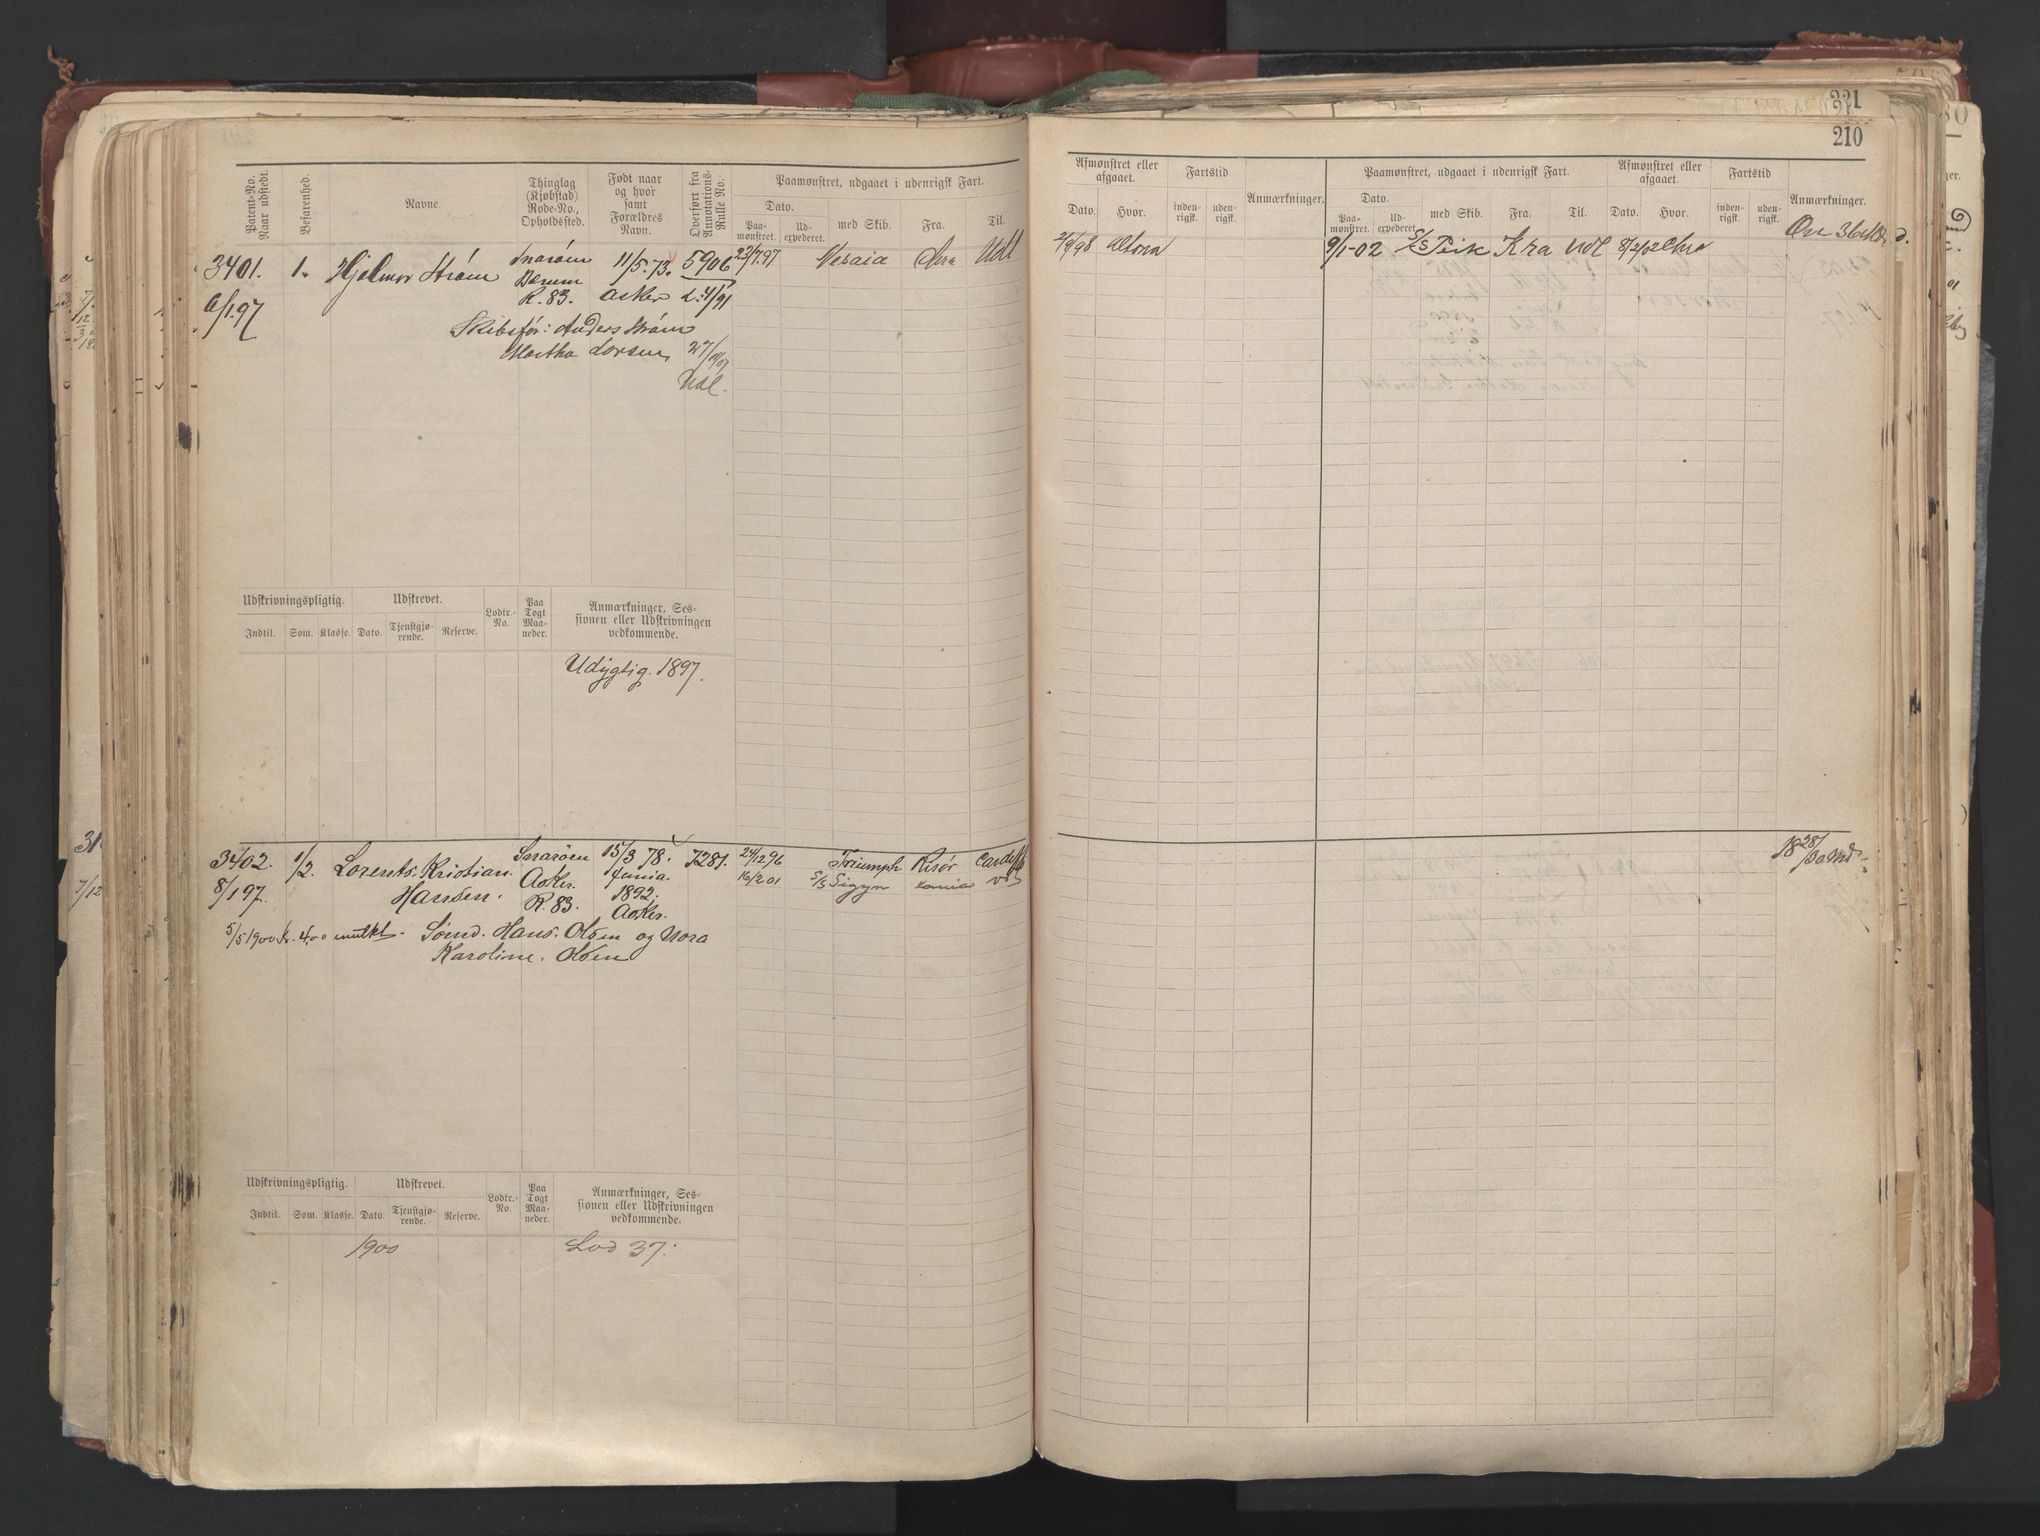 221
210
Patent-No. Naar udstedt.
Befarenhed.
Navne.
Thinglag (Kjøbstad) Rode-No., Opholdssted.
Født naar og hvor samt Forældres Navn.
Overført fra Annotations-Rulle No.
Paamønstret, udgaaet i udenrigsk Fart.
Dato.
Paa-mønstret.
Ud-expederet.
med Skib.
Fra.
Til.
3401.
6/1.97
1.
Hjalmar Strøm
Snarøen
Bærum
R. 83.
11/5.73.
Asker
5906
L. 4/91
23/7.97
Udl
Skibsfør: Anders Strøm
Martha Larsen
Udl.
Udskrivningspligtig.
Udskrevet.
Lodtr.-No.
Paa Togt Maa-neder.
Anmærkninger, Ses-sionen eller Udskrivningen vedkommende.
Indtil.
Som.
Klasse.
Dato.
Tjenstgjø-rende.
Reserve.
Udygtig. 1897.
3402.
8/1 97.
1/2.
Lorents. Kristian.
Hansen.
Snarøen
Asker.
R. 83.
15/3 78.
1892.
Asker.
7281.
24/12 96
Triumph
Risør
Cardiff
16/2 01
S/S Sigyn
5/5 1900 Kr. 4,00 mulkt.
Sømd. Hans. Olsen og Nora
Karoline. Olsen
Udskrivningspligtig.
Udskrevet.
Lodtr.-No.
Paa Togt Maa-neder.
Anmærkninger, Ses-sionen eller Udskrivningen vedkommende.
Indtil.
Som.
Klasse.
Dato.
Tjenstgjø-rende.
Reserve.
1900
Lod 37.
Afmønstret eller afgaaet.
Fartstid
Anmærkninger.
Dato.
Hvor.
inden-rigsk.
uden-rigsk.
Paamønstret, udgaaet i udenrigsk Fart.
Dato.
Paa-mønstret.
Ud-expederet.
med Skib.
Fra.
Til.
Afmønstret eller afgaaet.
Dato.
Hvor.
Fartstid
inden-rigsk.
uden-rigsk.
Anmærkninger.
2/9/98
Altona
9/1-02
S/S Peik
Kra
Udl
8/2/02
Chra